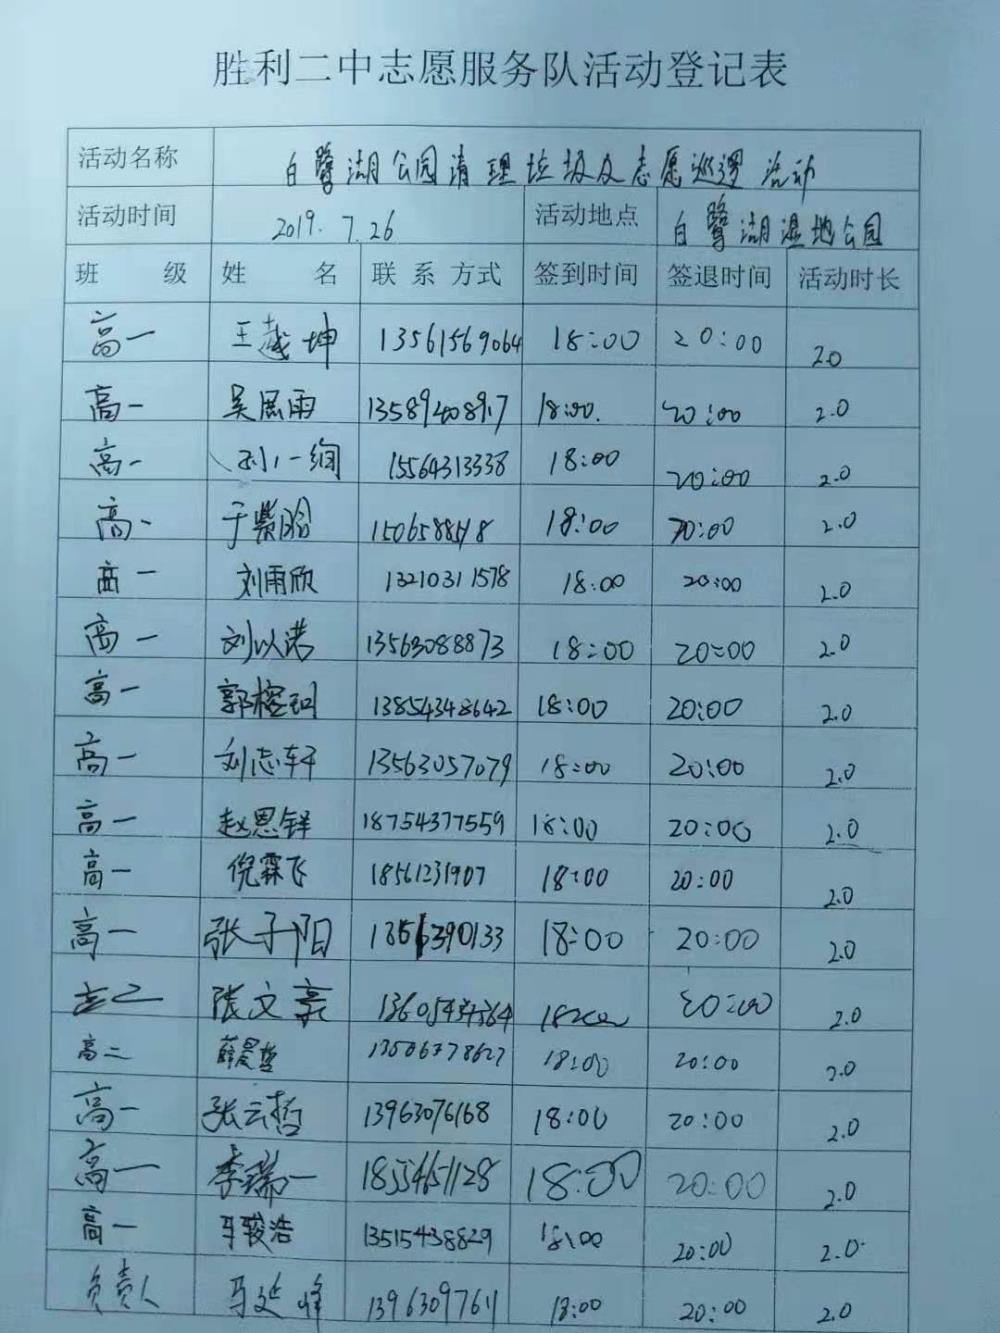 胜利二中志愿服务队活动登记表
活动名称 白鹭湖公园清理垃圾及志愿巡逻活动
活动时间 2019.7.26 活动地点 白鹭湖湿地公园
班 级 姓 名 联系方式 签到时间 签退时间 活动时长
高一 王越坤 13561569064 18:00 20:00 2.0
高一 吴雨 18:00 20:00 2.0
高一 一绚 15564313338 18:00 20:00 2.0
高一 于紫晗 18:00 20:00 2.0
高一 刘雨欣 13210311578 18:00 20:00 2.0
高一 刘以诺 13563088873 18:00 20:00 2.0
高一 郭 13854348642 18:00 20:00 2.0
高一 刘志轩 13563057079 18:00 20:00 2.0
高一 赵恩铎 18754377559 18:00 20:00 2.0
高一 倪霖飞 18561231907 18:00 20:00 2.0
高一 张子阳 18:00 20:00 2.0
张文豪 20:00 2.0
高二 薛晨哲 18:00 20:00 2.0
高一 张云哲 13963076168 18:00 20:00 2.0
高一 李瑞一 18554651128 18:00 20:00 2.0
高一 马骏浩 13515438829 18:00 20:00 2.0
负责人 马延峰 13963097611 18:00 20:00 2.0